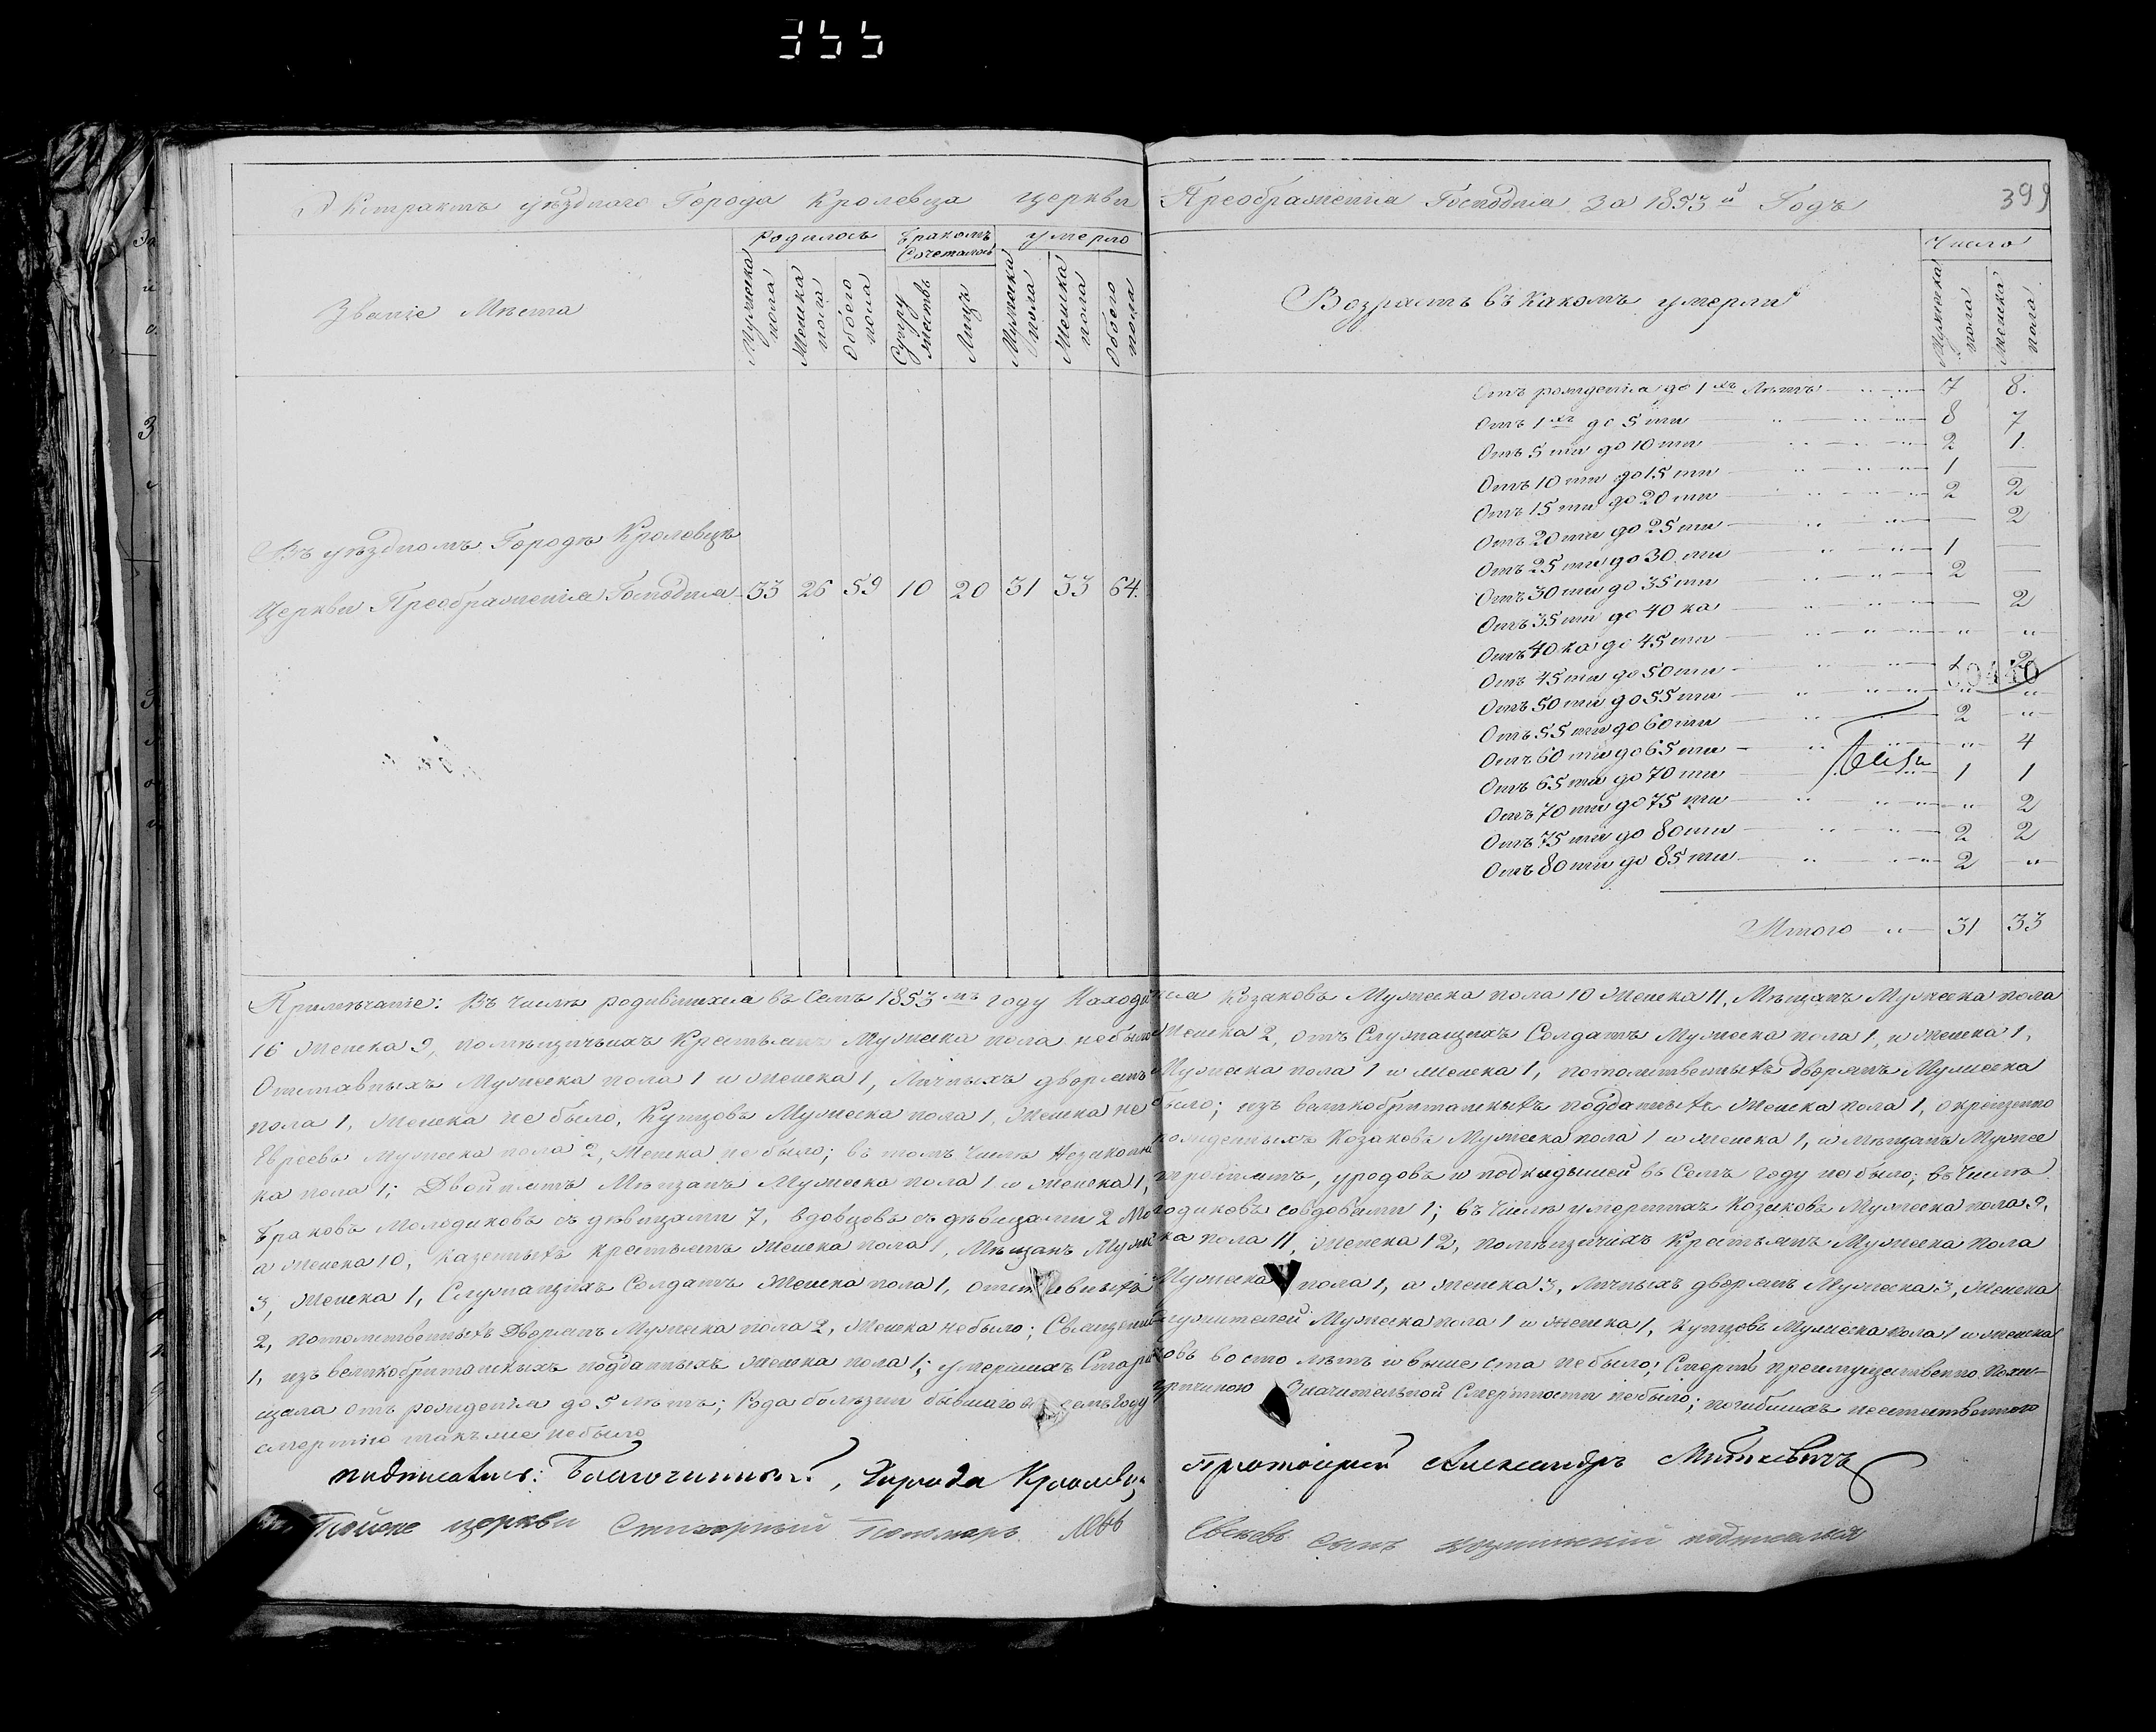 355
Экстрактъ уѣзднаго Города Кролевца церкви Преображенія Господня за 1853й Годъ
399
Званіе Мѣста
Родилось
Бракомъ Сочеталось
Умерло
Мужеска пола
Женска пола
Обоего пола
Супружествъ
Лицъ
Мужеска пола
Женска пола
Обоего пола
Возрастъ въ какомъ умерли
Число
Мужеска пола
Женска пола
Въ уѣздномъ Городѣ Кролевцѣ
Церкви Преображенія Господня 33 26 59 10 20 31 33 64.
Отъ рожденія до 1хъ Лѣтъ 7 8.
Отъ 1хъ до 5ти 8 7
Отъ 5ти до 10ти 2 1.
Отъ 10ти до 15ти 1 —
Отъ 15ти до 20ти 2 2
Отъ 20ти до 25ти — 2
Отъ 25ти до 30ти 1 —
Отъ 30ти до 35ти 2 —
Отъ 35ти до 40ка — 2
Отъ 40ка до 45ти " "
Отъ 45ти до 50ти 2
Отъ 50ти до 55ти " "
Отъ 55ти до 60ти 2 "
Отъ 60ти до 65ти " 4
Отъ 65ти до 70ти 1 1
Отъ 70ти до 75ти " 2
Отъ 75ти до 80ти 2 2
Отъ 80ти до 85ти 2 "
Итого " 31 33
Примѣчаніе: Въ числѣ родившихся въ семъ 1853мъ году находится Козаковъ Мужеска пола 10 Женска 11, Мѣщанъ Мужеска пола
16 Женска 9, помѣщичьихъ Крестьянъ Мужеска пола небыло Женска 2, отъ Служащихъ Солдатъ Мужеска пола 1, и Женска 1,
Отставныхъ Мужеска пола 1 и Женска 1, Личныхъ дворянъ Мужеска пола 1 и Женска 1, потомственныхъ дворянъ Мужеска
пола 1, Женска не было, Купцовъ Мужеска пола 1, Женска не было; изъ великобританскихъ подданныхъ Женска пола 1, окрещенно
Евреевъ Мужеска пола 2, Женска не было; въ томъ числѣ Незаконнорожденныхъ Козаковъ Мужеска пола 1 и Женска 1, и Мѣщанъ Мужес
ка пола 1; Двойнятъ Мѣщанъ Мужеска пола 1 и Женска 1, тройнятъ, уродовъ и подкидышей въ семъ году не было; въ числѣ
Браковъ Молодиковъ съ дѣвицами 7, вдовцовъ съ дѣвицами 2 Молодиковъ совдовами 1; въ числѣ умершихъ Козаковъ Мужеска пола 9,
а Женска 10, Казенныхъ крестьянъ Женска пола 1, Мѣщанъ Мужеска пола 11, Женска 12, помѣщичихъ Крестьянъ Мужеска пола
3, Женска 1, Служащихъ Солдатъ Женска пола 1, отставныхъ Мужеска пола 1, а Женска 3, Личныхъ дворянъ Мужеска 3, Женска
2, потомственныхъ Дворянъ Мужеска пола 2, Женска не было; Священнослужителей Мужеска пола 1 и Женска 1, Купцовъ Мужеска пола 1 и Женска
1, изъ великобританскихъ подданныхъ Женска пола 1; умершихъ Стариковъ во сто лѣтъ и выше ста не было; Смерть преимущественно похи-
щала отъ рожденія до 5 лѣтъ; Рода болѣзни бывшаго въ семъ году причиною Значительной Смертности небыло; погибшихъ неестественною
смертію такъже не было
подписались: Благочинный, Города Кролевца Протоіерей Александръ Миткевичъ
церкви Стихарный Пономарь сынъ подписался